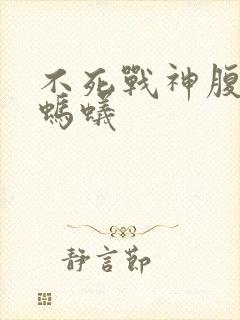 不死戰神腹
螞蟻
靜言節